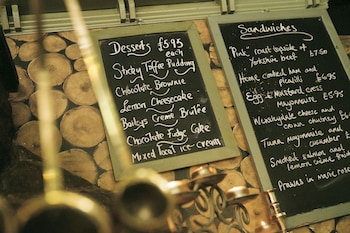 Desserts £5.95
each
Sticky Toffee Pudding
Chocolate Brownie
Lemon Cheesecake
Baileys Creme Brulee
Chocolate Fudge Cake
Mixed local ice cream
Sandwiches
Pink roast topside of
Yorkshire beef £7.50
Home cooked ham and
£6.95
Egg & mustard cress
mayonnaise £5.95
Wensleydale cheese and
chutney
Tuna mayonnaise and
cucumber
Smoked salmon and
lemon creme
Prawns in marie rose